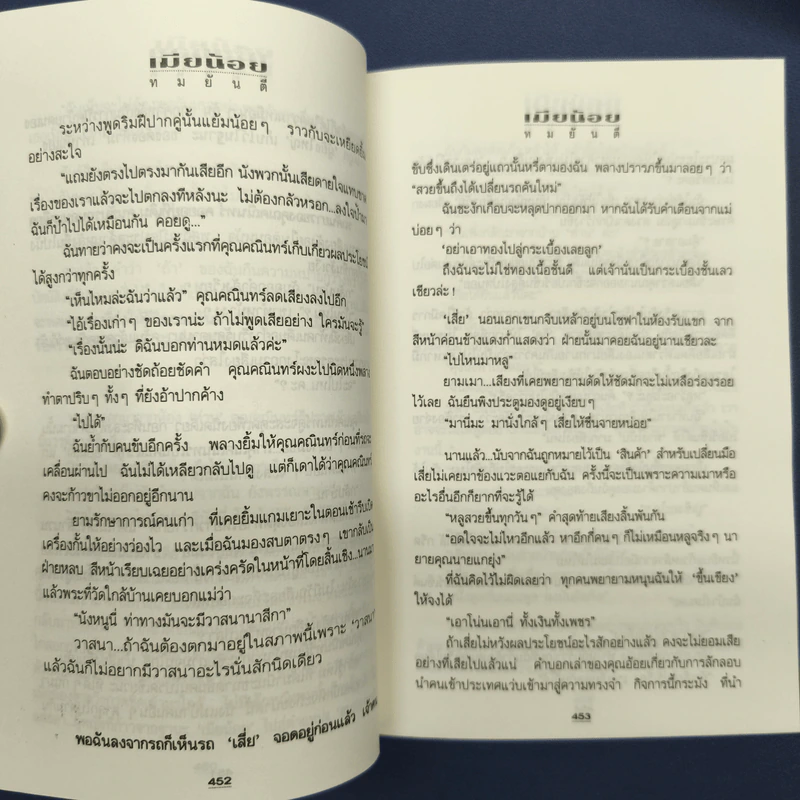 เมียน้อย
ทมยันตี
ระหว่างพูดริมฝีปากคู่นั้นแย้มน้อยๆ ราวกับจะเหยียดยิ้ม
อย่างสะใจ
“แถมยังตรงไปตรงมากันเสียอีก นังพวกนั้นเสียดายใจแทบขาด
เรื่องของเราแล้วจะไปตกลงทีหลังนะ ไม่ต้องกลัวหรอก...ลงใจป้ำมา
ฉันก็ป้ำไปได้เหมือนกัน คอยดู...”
ฉันทายว่าคงจะเป็นครั้งแรกที่คุณคณินทร์เก็บเกี่ยวผลประโยชน์
ได้สูงกว่าทุกครั้ง
“เห็นไหมล่ะฉันว่าแล้ว” คุณคณินทร์ลดเสียงลงไปอีก
“ไอ้เรื่องเก่าๆ ของเราน่ะ ถ้าไม่พูดเสียอย่าง ใครมันจะรู้”
“เรื่องนั้นน่ะ ดิฉันบอกท่านหมดแล้วค่ะ”
ฉันตอบอย่างชัดถ้อยชัดคำ คุณคณินทร์ผงะไปนิดหนึ่งพลาง
ทำตาปริบๆ ทั้งๆ ที่ยังอ้าปากค้าง
“ไปได้”
ฉันย้ำกับคนขับอีกครั้ง พลางยิ้มให้คุณคณินทร์ก่อนที่รถจะ
เคลื่อนผ่านไป ฉันไม่ได้เหลียวกลับไปดู แต่ก็เดาได้ว่าคุณคณินทร์
คงจะก้าวขาไม่ออกอยู่อีกนาน
ยามรักษาการณ์คนเก่า ที่เคยยิ้มแกมเยาะในตอนเช้ารีบเปิด
เครื่องกั้นให้อย่างว่องไว และเมื่อฉันมองสบตาตรงๆ เขากลับเป็น
ฝ่ายหลบ สีหน้าเรียบเฉยอย่างเคร่งครัดในหน้าที่โดยสิ้นเชิง...นานมา
แล้วพระที่วัดใกล้บ้านเคยบอกแม่ว่า
“นังหนูนี่ ท่าทางมันจะมีวาสนานาสีกา”
วาสนา...ถ้าฉันต้องตกมาอยู่ในสภาพนี้เพราะ ‘วาสนา’
แล้วฉันก็ไม่อยากมีวาสนาอะไรนั่นสักนิดเดียว
พอฉันลงจากรถก็เห็นรถ ‘เสี่ย’ จอดอยู่ก่อนแล้ว
452
เมียน้อย
ทมยันตี
ขับซึ่งเดินเตร่อยู่แถวนั้นหรี่ตามองฉัน พลางปรารภขึ้นมาลอยๆ ว่า
“สวยขึ้นถึงได้เปลี่ยนรถคันใหม่”
ฉันชะงักเกือบจะหลุดปากออกมา หากฉันได้รับคำเตือนจากแม่
บ่อยๆ ว่า
‘อย่าเอาทองไปลู่กระเบื้องเลยลูก’
ถึงฉันจะไม่ใช่ทองเนื้อชั้นดี แต่เจ้านั่นเป็นกระเบื้องชั้นเลว
เชียวล่ะ !
‘เสี่ย’ นอนเอกเขนกจิบเหล้าอยู่บนโซฟาในห้องรับแขก จาก
สีหน้าค่อนข้างแดงก่ำแสดงว่า ฝ่ายนั้นมาคอยฉันอยู่นานเชียวละ
“ไปไหนมาหลู”
ยามเมา...เสียงที่เคยพยายามดัดให้ชัดมักจะไม่เหลือร่องรอย
ไว้เลย ฉันยืนพิงประตูมองดูอยู่เงียบๆ
“มานี่มะ มานั่งใกล้ๆ เสี่ยให้ชื่นจายหน่อย”
นานแล้ว...นับจากฉันถูกหมายไว้เป็น ‘สินค้า’ สำหรับเปลี่ยนมือ
เสี่ยไม่เคยมาข้องแวะตอแยกับฉัน ครั้งนี้จะเป็นเพราะความเมาหรือ
อะไรอื่นอีกก็ยากที่จะรู้ได้
“หลูสวยขึ้นทุกวันๆ” คำสุดท้ายเสียงลิ้นพันกัน
“อดใจจะไม่ไหวอีกแล้ว หาอีกกี่คนๆ ก็ไม่เหมือนหลูจริงๆ นา
ยายคุณนายแกยุ่ง”
ที่ฉันคิดไว้ไม่ผิดเลยว่า ทุกคนพยายามหนุนฉันให้ ‘ขึ้นเขียง’
ให้จงได้
“เอาโน่นเอานี่ ทั้งเงินทั้งเพชร”
ถ้าเสี่ยไม่หวังผลประโยชน์อะไรสักอย่างแล้ว คงจะไม่ยอมเสีย
อย่างที่เสียไปแล้วแน่ คำบอกเล่าของคุณอ้อยเกี่ยวกับการลักลอบ
นำคนเข้าประเทศแว่บเข้ามาสู่ความทรงจำ กิจการนี้กระมัง ที่นำ
453